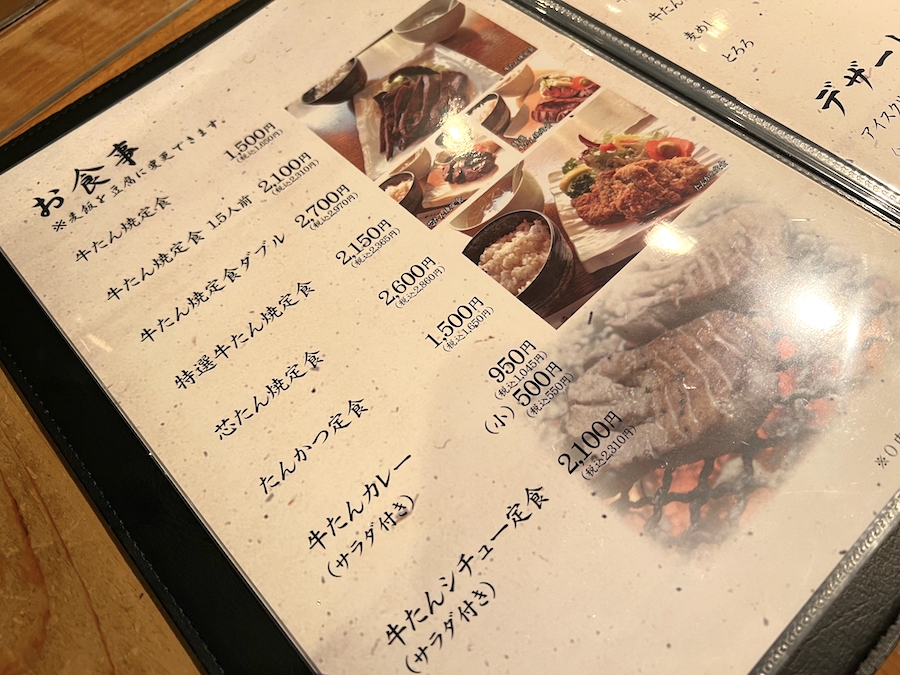 お食事
※麦飯を豆腐に変更できます。
牛たん焼定食 1,500円
(税込1,650円)
牛たん焼定食 1.5人前 2,100円
(税込2,310円)
牛たん焼定食ダブル 2,700円
(税込2,970円)
特選牛たん焼定食 2,150円
(税込2,365円)
芯たん焼定食 2,600円
(税込2,860円)
たんかつ定食 1,500円
(税込1,650円)
牛たんカレー 950円
(税込1,045円)
(サラダ付き) (小) 500円
(税込550円)
牛たんシチュー定食 2,100円
(税込2,310円)
(サラダ付き)
牛たん
麦めし
とろろ
デザー
アイスク
※0